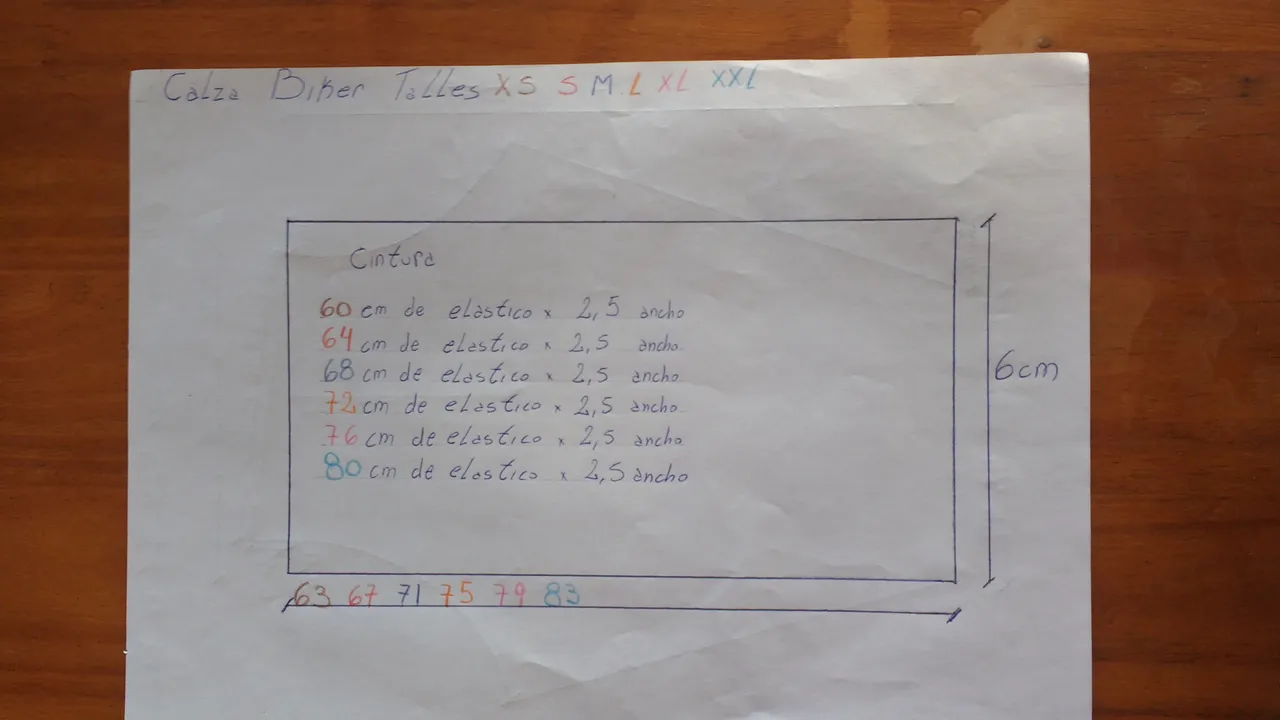 Calza Biker Talles XS S M L XL XXL
Cintura
60 cm de elastico x 2,5 ancho
64 cm de elastico x 2,5 ancho
68 cm de elastico x 2,5 ancho
72 cm de elastico x 2,5 ancho
76 cm de elastico x 2,5 ancho
80 cm de elastico x 2,5 ancho
6cm
63 67 71 75 79 83